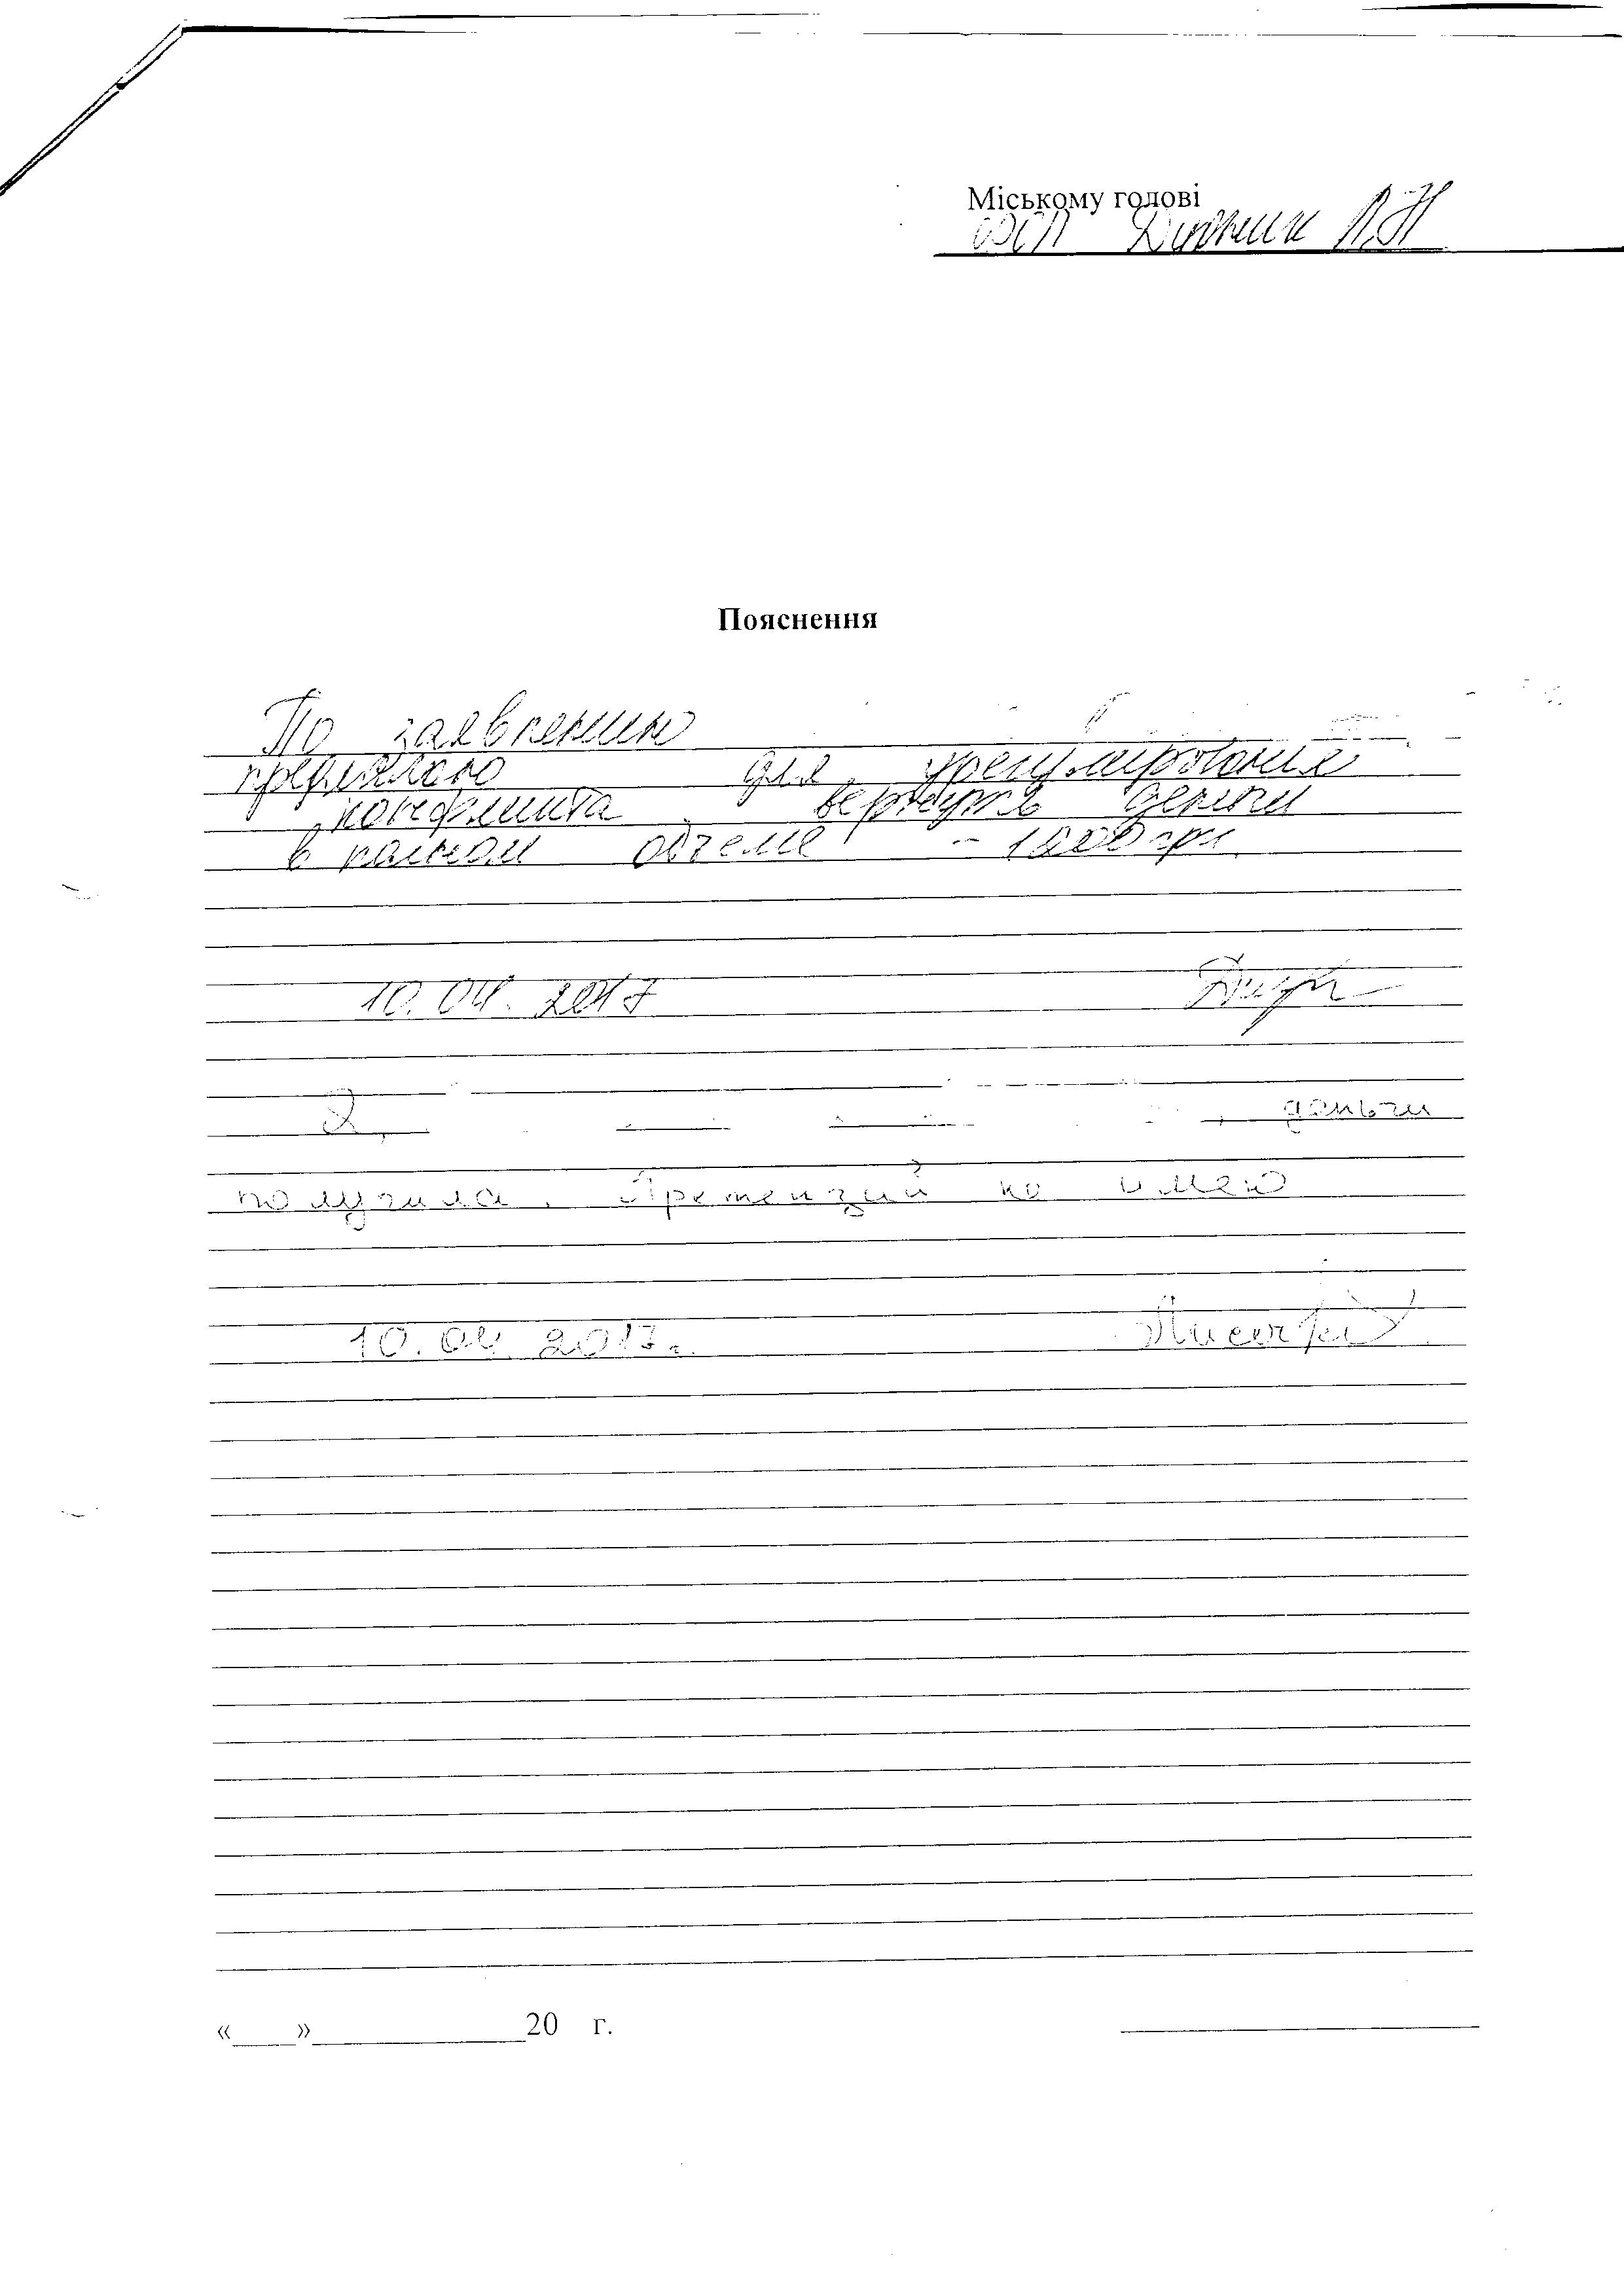 Міському голові
Пояснення
По заявлению
предлагаю для урегулирования
конфликта вернуть деньги
в полном объеме - 1000 грн.
10.04.2017
Я, деньги
получила. Претензий не имею
10.04.2017г.
«____»____________20 г.